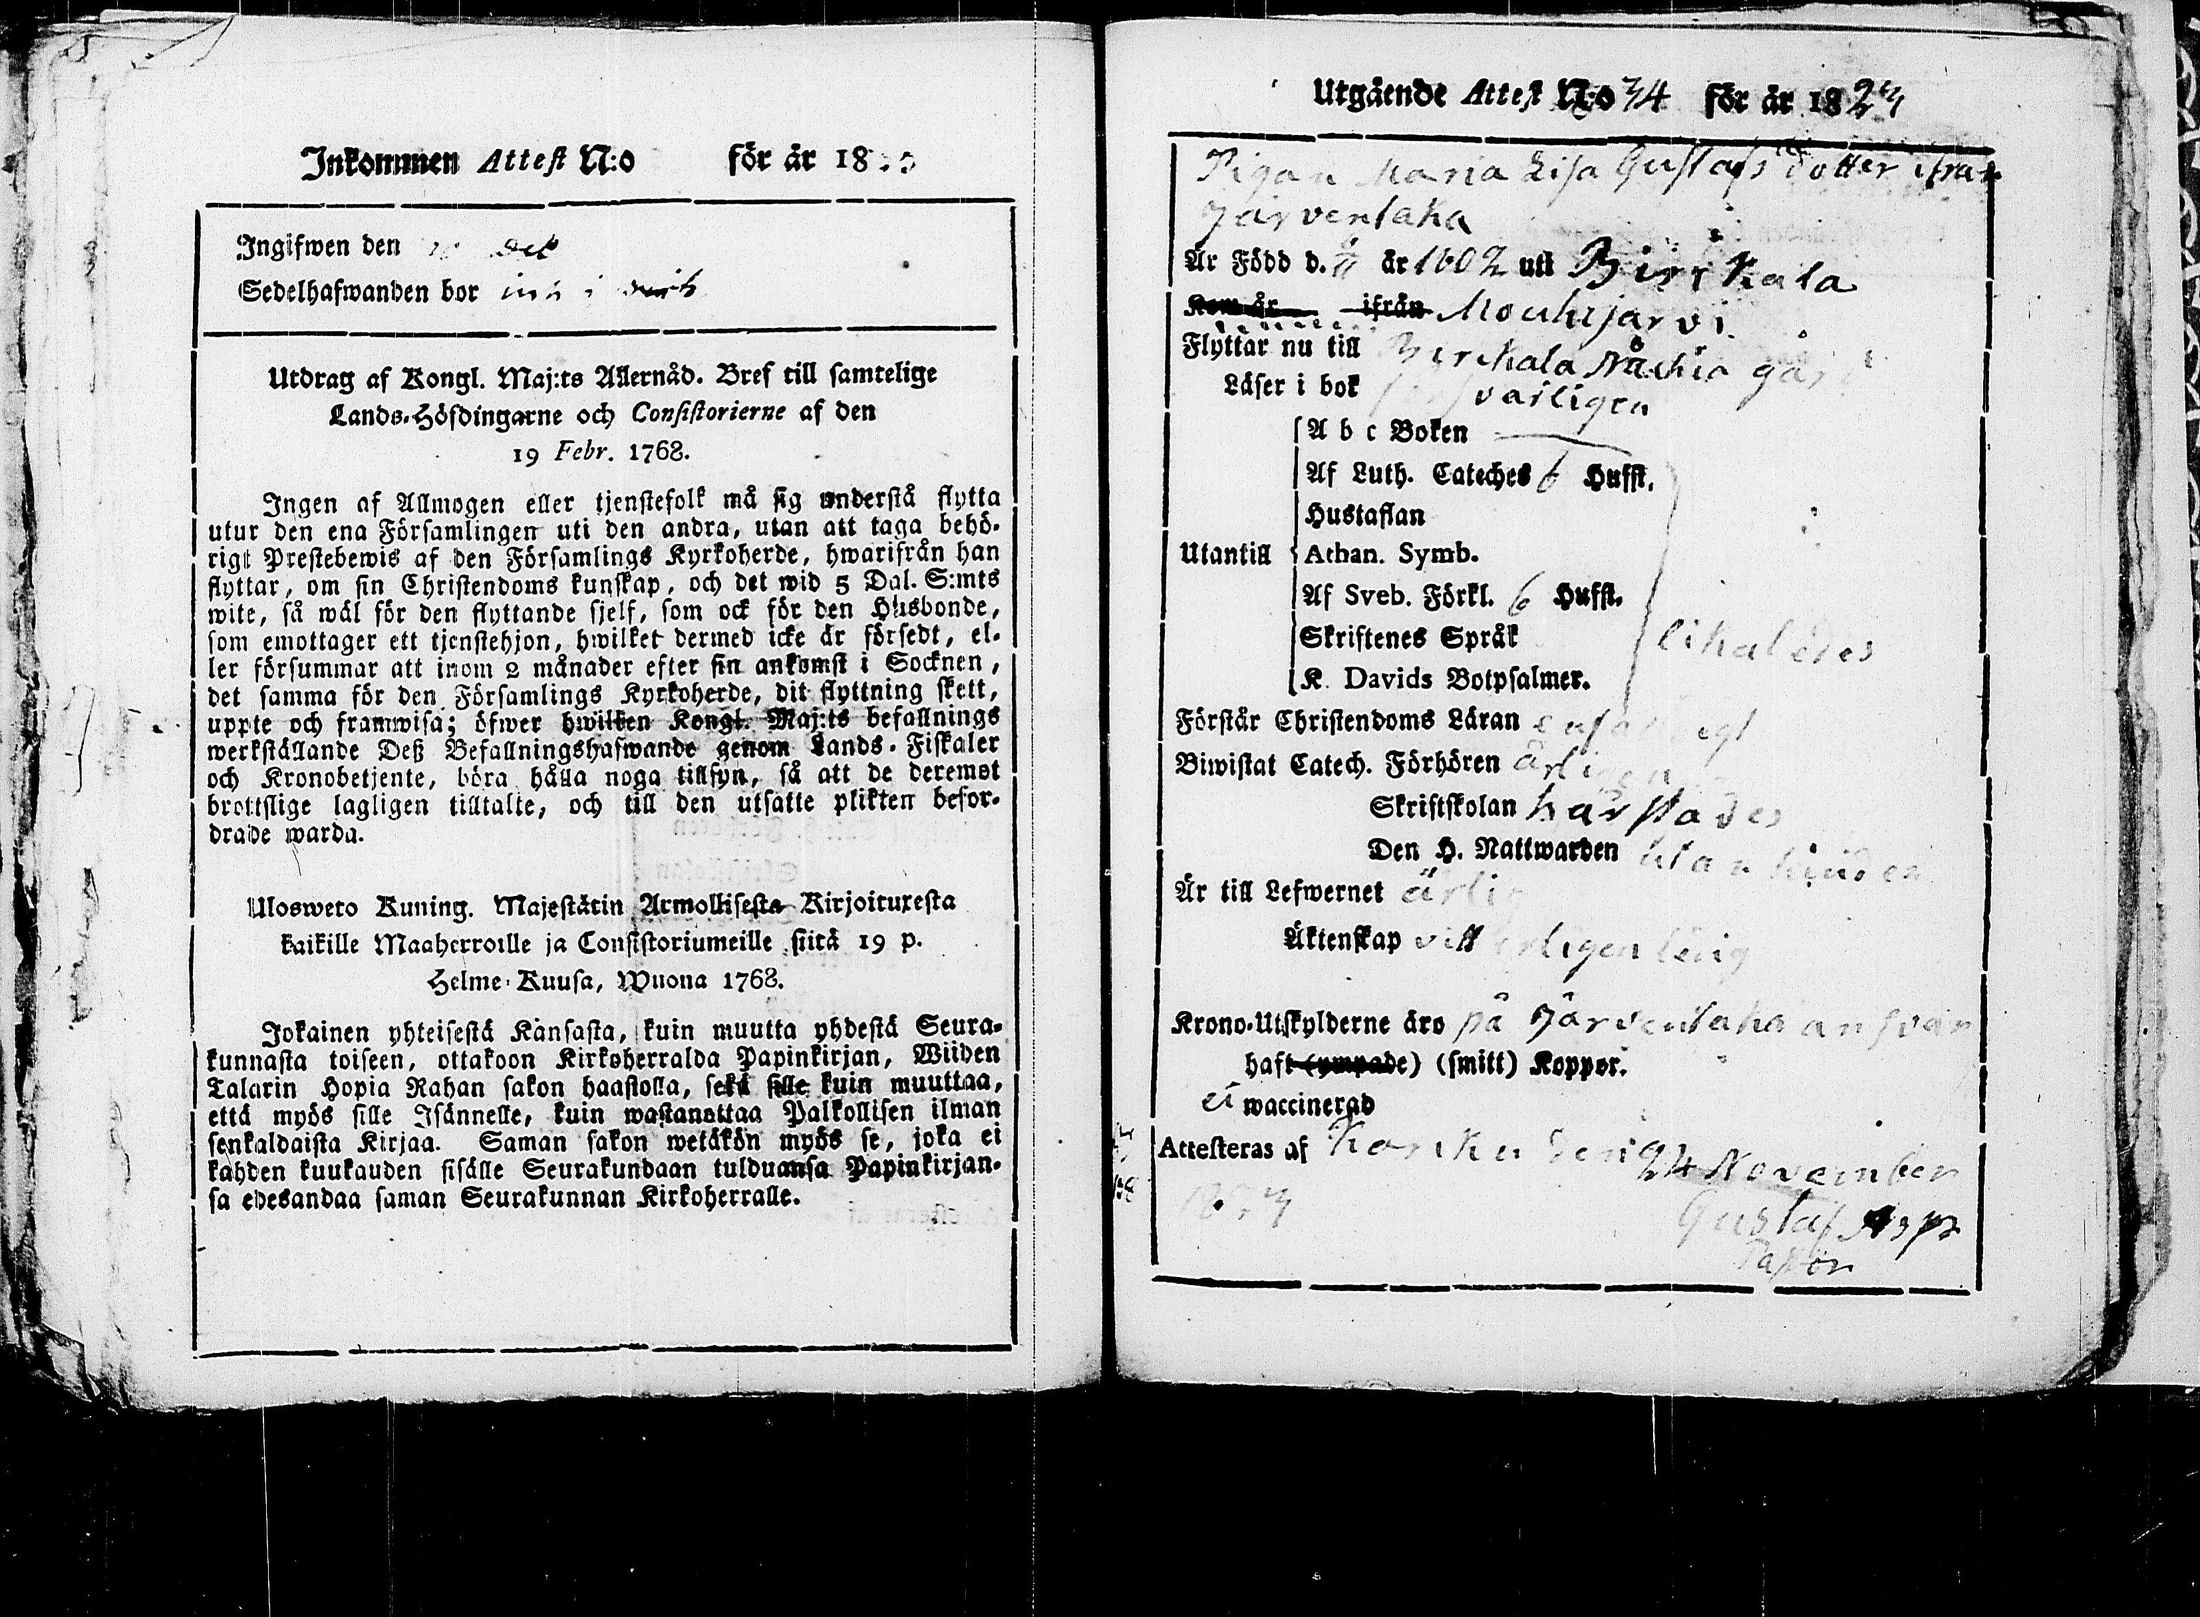 Inkommen Attest N:o för år 18
Ingifwen den
Sedelhafwanden bor
Utdrag af Kongl. Maj:ts Allernåd. Bref till samtelige
Lands-Höfdingarne och Consistorierne af den
19 Febr. 1768.
Ingen af Allmogen eller tjenstefolk må sig understå flytta
utur den ena Församlingen uti den andra, utan att taga behö-
rigt Prestebewis af den Församlings Kyrkoherde, hwarifrån han
flyttar, om sin Christendoms kunskap, och det wid 5 Dal. S:mts
wite, så wäl för den flyttande sjelf, som ock för den Husbonde,
som emottager ett tjenstehjon, hwilket dermed icke är försedt, el-
ler försummar att inom 2 månader efter sin ankomst i Socknen,
det samma för den Församlings Kyrkoherde, dit flyttning skett,
uppte och framwisa; öfwer hwilken Kongl. Maj:ts befallnings
werkställande Deß Befallningshafwande genom Lands-Fiskaler
och Kronobetjente, böra hålla noga tillsyn, så att de deremot
brottslige lagligen tilltalte, och till den utsatte plikten befor-
drade warda.
Ulosweto Kuning. Majestätin Armollisesta Kirjoituxesta
kaikille Maaherroille ja Consistoriumeille siitä 19 p.
Helme-Kuusa, Wuona 1768.
Jokainen yhteisestä Kansasta, kuin muutta yhdestä Seura-
kunnasta toiseen, ottakoon Kirkoherralda Papinkirjan, Wiiden
Talarin Hopia Rahan sakon haastolla, sekä sille kuin muuttaa,
että myös sille Isännelle, kuin wastanottaa Palkollisen ilman
senkaldaista Kirjaa. Saman sakon wetäkön myös se, joka ei
kahden kuukauden sisälle Seurakundaan tulduansa Papinkirjan-
sa edesandaa saman Seurakunnan Kirkoherralle.
Utgående Attest N:o 34 för år 1823
Pigan Maria Lisa Gustafs dotter ifrån
Järventaka
Är Född d. år 1802 uti Birkala
Kom år ifrån Mouhijärvi
Flyttar nu till Birckala Nåckia gård
Läser i bok svarligen
A b c Boken
Af Luth. Cateches 6 Hufst.
Hustaflan
Utantill Athan. Symb.
Af Sveb. Förkl. 6 Hufst.
Skriftenes Språk likaledes
K. Davids Botpsalmer.
Förstår Christendoms Läran enfaldigt
Biwistat Catech. Förhören årligen
Skriftskolan härstädes
Den H. Nattwarden utan hinder
Är till Lefwernet ärlig
Äktenskap till ledig
Krono-Utskylderne äro på Järventaka ansvar
haft (ympade) (smitt) Koppor.
ei waccinerad
Attesteras af Karcku den 24 November
1823
Gustaf
Pastor